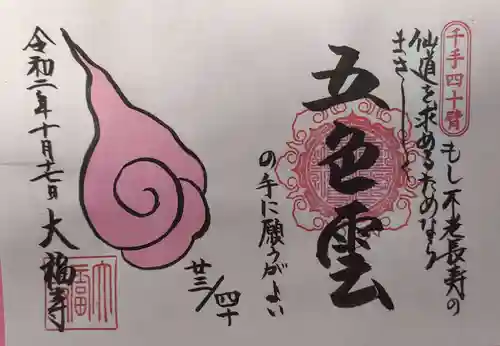 千手四十臂
もし不老長寿の
仙道を求めるためなら
まさしく
五色雲
の手に願うがよい
廿三/四十
令和二年十月十七日
大福寺
大福